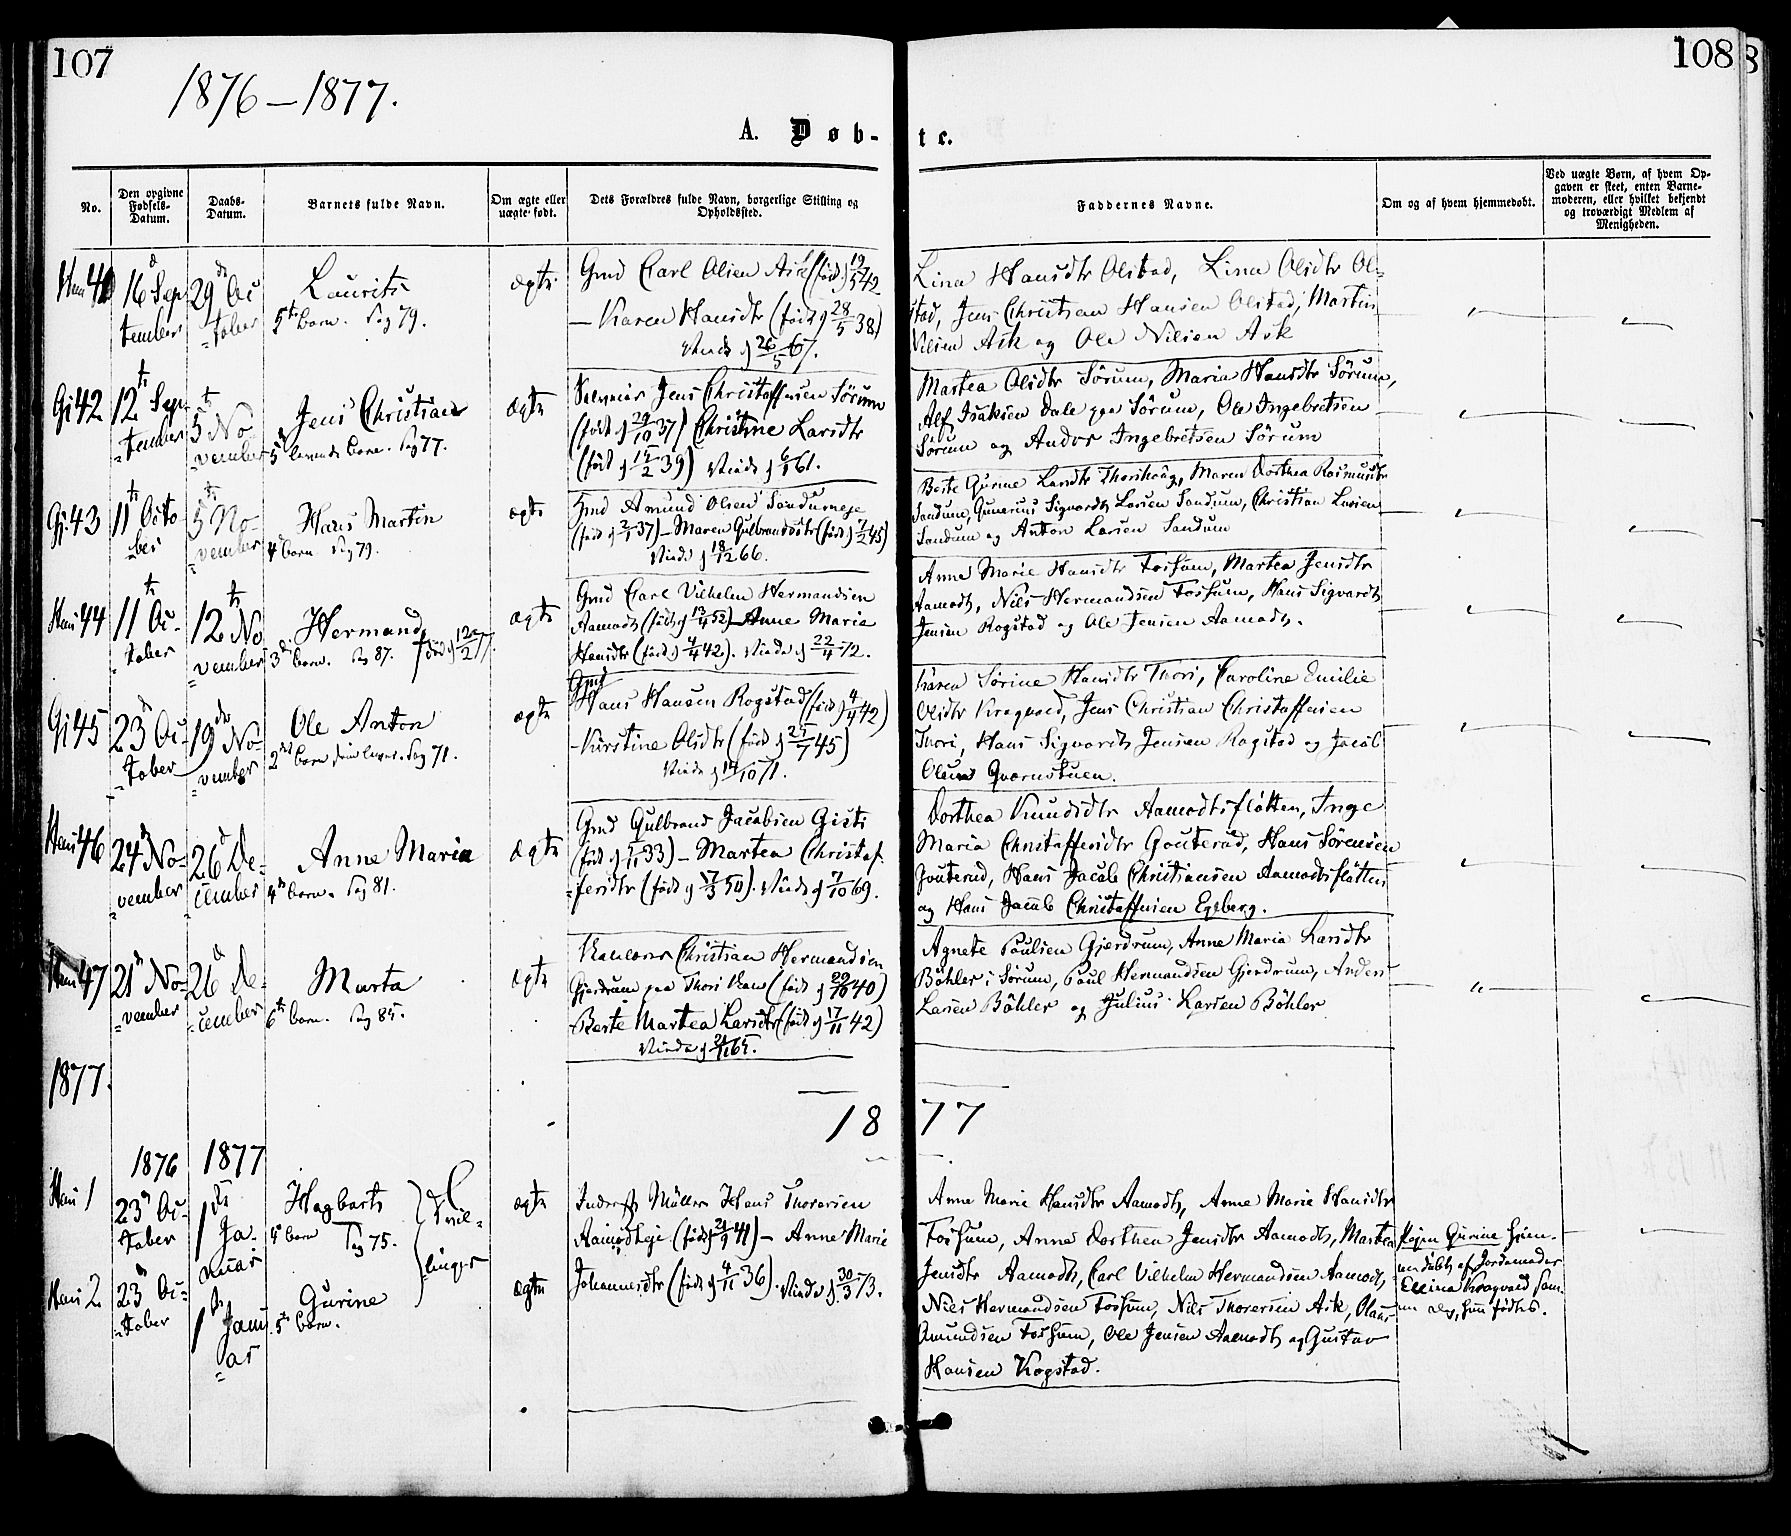 107
108
8
1876 – 1877.
A. Døb-
te.
No.
Den opgivne Fødsels-Datum.
Daabs-Datum.
Barnets fulde Navn.
Om ægte eller uægte født.
Dets Forældres fulde Navn, borgerlige Stilling og Opholdssted.
Faddernes Navne.
Om og af hvem hjemmedøbt.
Ved uægte Børn, af hvem Op-
gaven er skeet, enten Barne-
moderen, eller hvilket bekjendt
og troværdigt Medlem af
Menigheden.
16 Sep
tember
29 Oc
tober
Laurits
5te barn. Pag 79.
ægte
Gmd Carl Olsen Ask (født 19/5 42
– Karen Hansdtr (født d 28/5 38)
Viede d 26/5 67.
Lina Hansdtr Olstad, Lina Olsdtr Ol=
stad, Jens Christian Hansen Olstad, Martin
Nilsen Ask og Ole Nilsen Ask
Gj 42
12te Sep
tember
5te No
vember
Jens Christian
5 levende barn. Pag 77.
ægte
Jens Christoffersen Sörum
(født d 29/10 37) Christine Larsdtr
Viede d 6/1 61.
Martea Olsdtr Sörum, Maria Hansdtr Sörum,
Alf Isaksen Dale paa Sörum, Ole Ingebretsen
Sörum og Anders Ingebretsen Sörum
Gj 43
11te Octo
ber
5te No-
vember
Hans Martin
4de barn Pag 79.
ægte
Gmd Amund Olsen Sandumeje
(født d 2/1 37) – Maren Gulbrandsdtr (født d 7/2 45)
Viede d 18/12 66.
Berte Gurine Larsdtr Maren Dorthea Rasmusdtr
Sandum, Gunerius Sigvardts Larsen Sandum, Christian Larsen
Sandum og Anton Larsen Sandum
44
11te Oc-
tober
12te No
vember
Hermand
3die barn. Pag 87. Död d 12/2 77.
ægte
Gmd Carl Vilhelm Hermandsen
Aamodt (født d 13/4 52) – Anne Marie
Hansdtr (født d 4/4 42). Viede d 22/4 72.
Anne Marie Hansdtr Fossum, Martea Jensdtr
Aamodt, Nils Hermandsen Fossum, Hans Sigvardt
Jensen Rogstad og Ole Jensen Aamodt.
Gj 45
23d Oc-
tober
19de No-
vember
Ole Anton
2det barn som lever. Pag 71.
ægte
Gmd
Hans Hansen Rogstad (født d 4/4 42)
– Kirstine Olsdtr (født d 25/7 45)
Viede d 14/10 71.
Karen Sörine Hansdtr Thori, Caroline Emilie
Olsdtr Kragvold, Jens Christian Christoffersen
Thori, Hans Sigvardt Jensen Rogstad og Jacob
Olsen Qvernstuen.
46
24de No-
vember
26d De-
cember
Anne Maria
4de barn. Pag 81.
ægte
Gmd Gulbrand Jacobsen
33) – Martea Christof-
fersdtr (født d 17/3 50). Viede d 7/10 69.
Dorthea Knudsdtr Aamodtsfløtten, Inge
Maria Christoffersdtr Gouterud, Hans Sörensen
Gouterud, Hans Jacob Christiansen Aamodtsfløtten
og Hans Jacob Christoffersen Egeberg.
47
21de No-
vember
26d De-
cember
Marta
6te barn. Pag 85.
ægte
Christian Hermandsen
Gjerdrum paa Thori (født d 29/10 40)
Berte Martea Larsdtr (født d 17/11 42)
Agnete Paulsen Gjerdrum, Anne Maria Larsdtr
Böhler i Sörum, Paul Hermandsen Gjerdrum, Anders
Larsen Böhler og Julius Larsen Böhler
1877.
18 77
1876
1877
1
23de Oc-
tober
1ste Ja-
nuar
Hagbart
4de barn Pag 75.
Tvil=
linger
ægte
Inderst Müller Hans Thoresen
Aamodteje (født d 21/9 41) – Anne Marie
Johannesdtr (født d 4/11 36). Viede d 30/3 73.
Anne Marie Hansdtr Aamodt, Anne Marie Hansdtr
Fossum, Anne Dorthea Jensdtr Aamodt, Martea
Jensdtr Aamodt, Carl Vilhelm Hermandsen Aamodt,
Nils Hermandsen Fossum, Nils Thoresen Ask, Olaus
Amundsen Fossum, Ole Jensen Aamodt og Gustav
Hansen Rogstad.
Pigen Gurine hjem-
medöbt af Jordemoder
Elina Kragvold sam-
me Dag, hun födtes.
2
23de Oc-
tober
1ste Janu
ar
Gurine
5te barn.
ægte